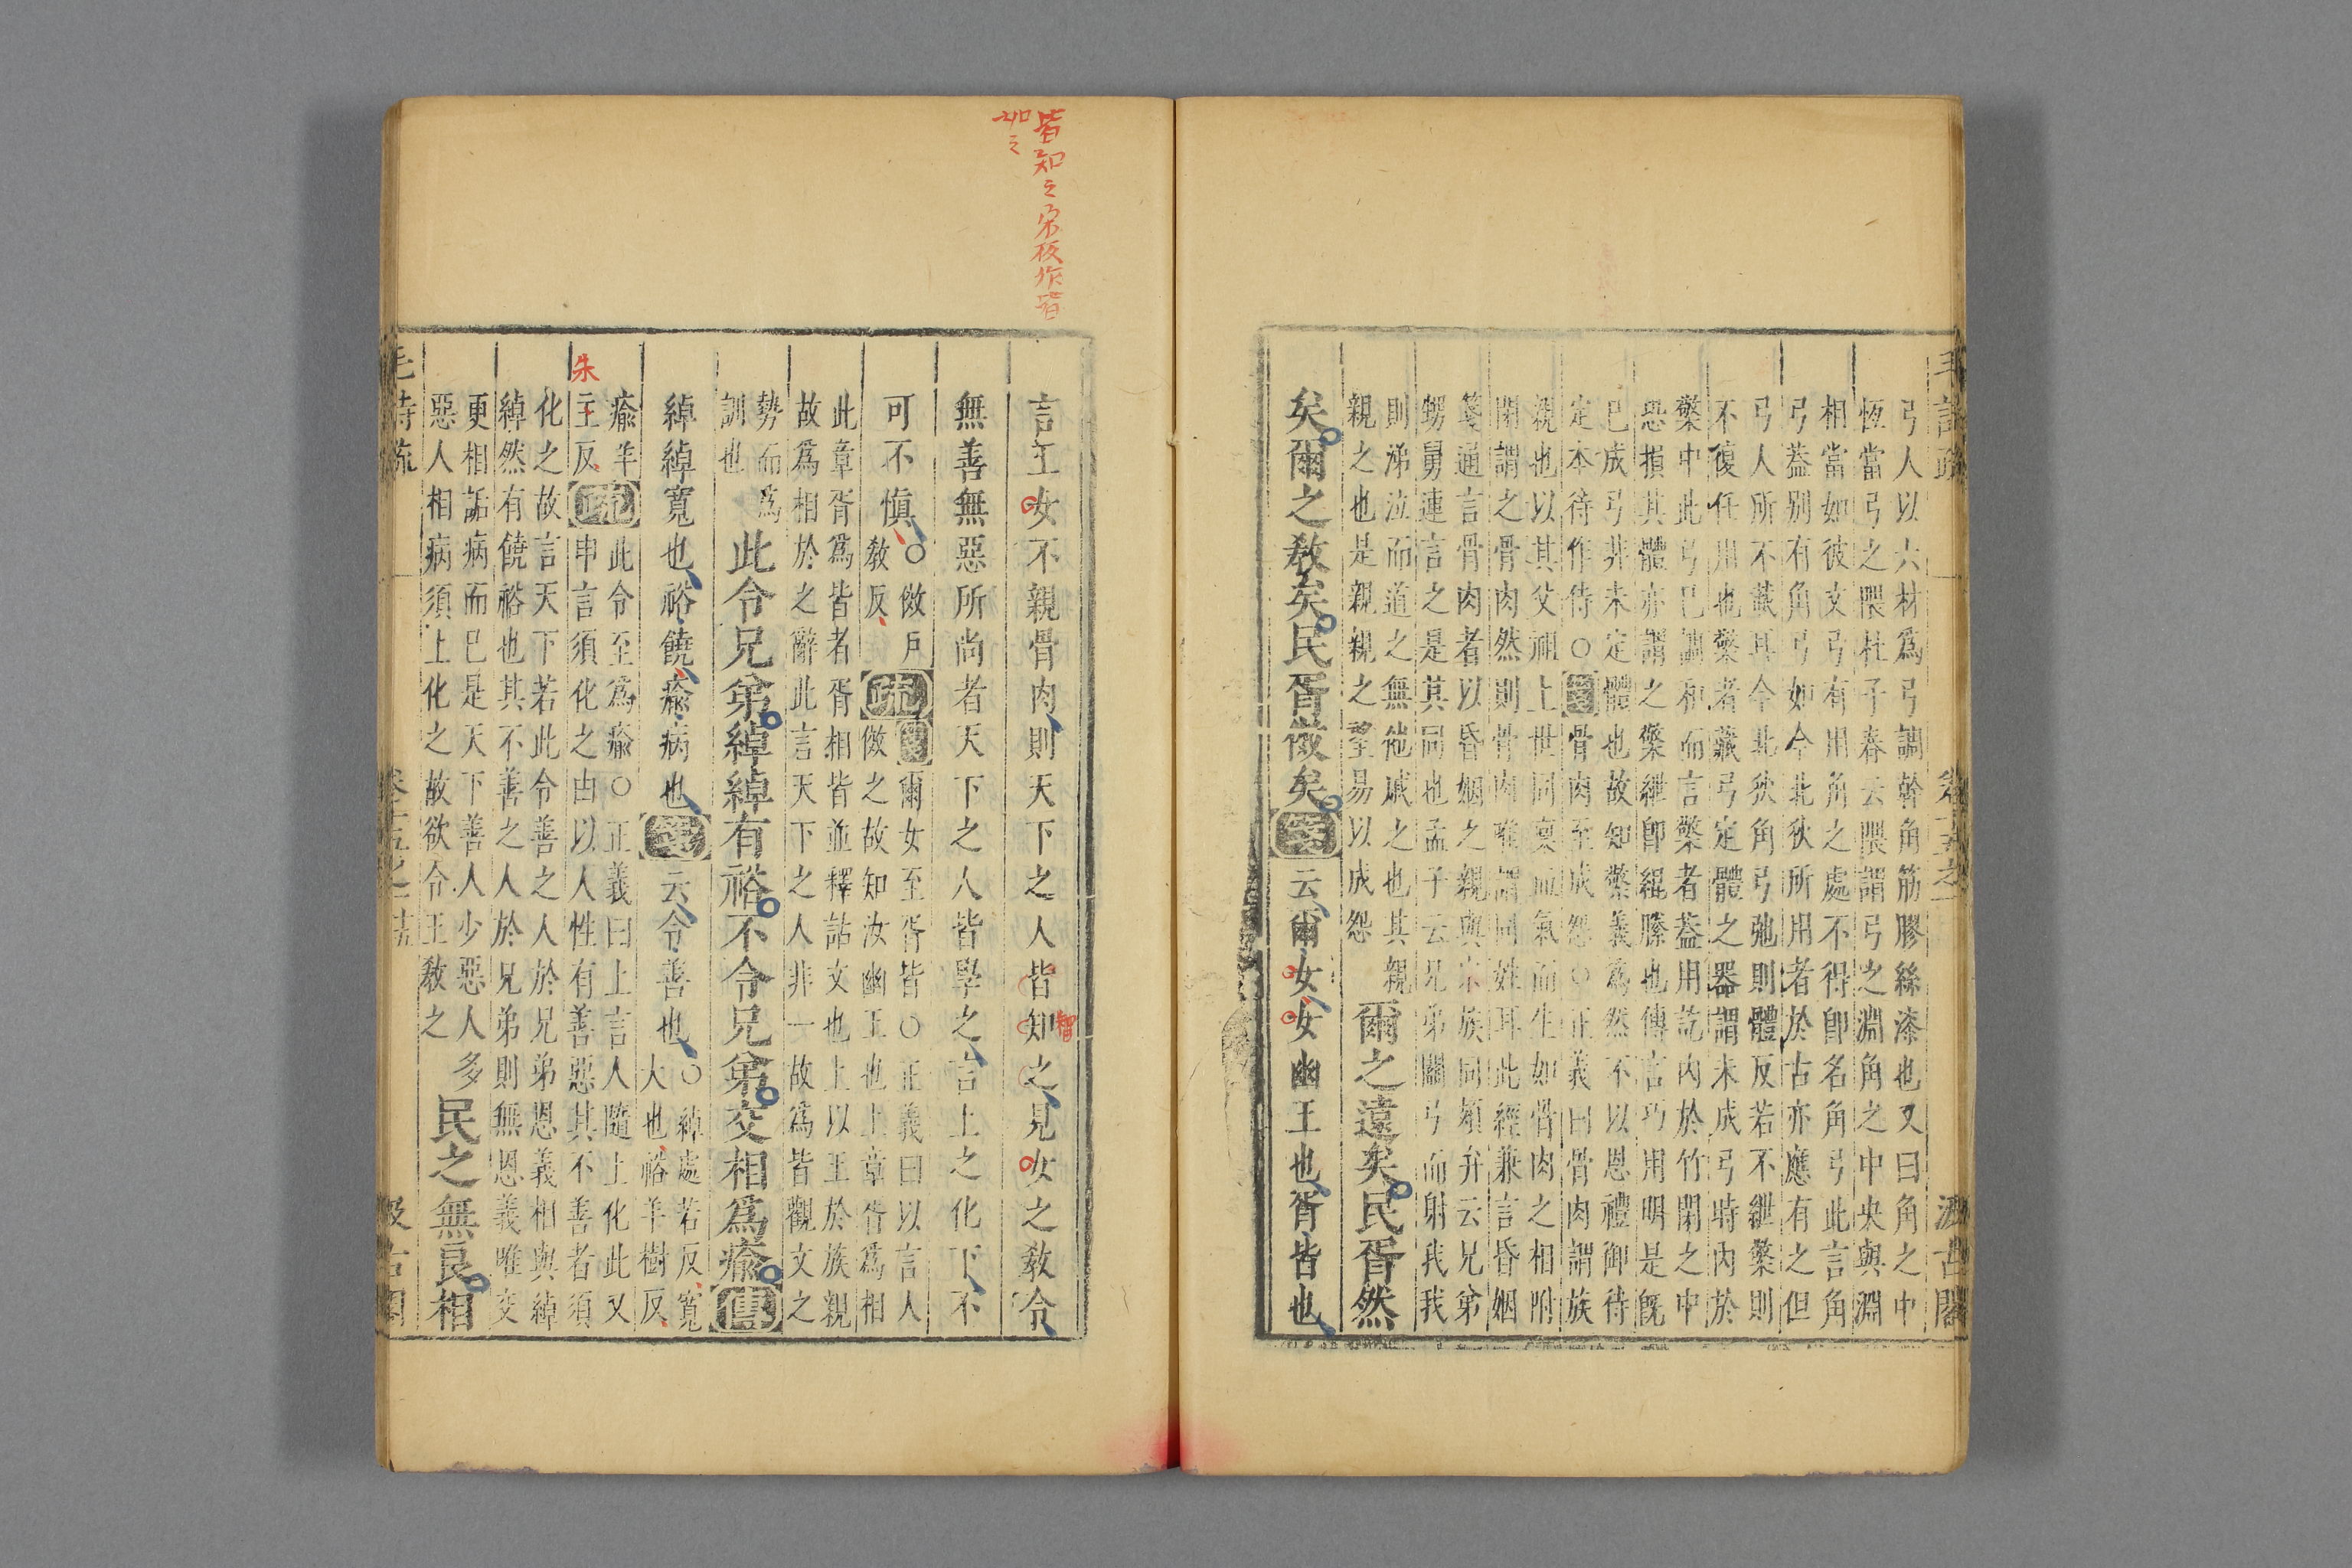 弓人以六材爲弓謂幹角筋膠絲漆也又曰角之中
恆當弓之隈杜子春云隈謂弓之淵角之中央與淵
相當如彼文弓有用角之處不得卽名角弓此言角
弓葢別有角弓如今北狄所用者於古亦應有之但
弓人所不載耳今北狄角弓弛則體反若不紲檠則
不復任用也檠者藏弓定體之器謂未成弓時內於
檠中此弓已調和而言檠者葢用訖內於竹閉之中
恐損其體亦謂之檠紲卽緄縢也傳言巧用明是旣
已成弓非未定體也故知檠義爲然不以恩禮御待
定本待作侍○箋骨肉至成怨○正義曰骨肉謂族
親也以其父祖上世同稟血氣而生如骨肉之相附
閉謂之骨肉然則骨肉唯謂同姓耳此經兼言昏姻
箋通言骨肉者以昏姻之親與宗族同頍弁云兄弟
甥舅連言之是其同也孟子云兄弟關弓而射我我
則涕泣而道之無他戚之也其親
親之也是親親之望易以成怨
爾之遠矣民胥然
矣爾之教矣民胥傚矣箋云爾女女幽王也胥皆也
毛詩疏 卷十五之一 汲古閣
皆知之宋板作皆
如之
言王女不親骨肉則天下之人皆知之見女之敎令
智
無善無惡所尚者天下之人皆學之言上之化下不
可不愼
○傚戶
敎反
疏箋爾女至胥皆○正義曰以言人
傚之故知汝幽王也上章胥爲相
此章胥爲皆者胥相皆並釋詁文也上以王於族親
故爲相於之辭此言天下之人非一故爲皆觀文之
勢而爲
訓也
此令兄弟綽綽有裕不令兄弟交相爲瘉傳
綽綽寬也裕饒瘉病也箋云令善也
○綽處若反寬
大也裕羊樹反
瘉羊
主反
朱
疏此令至爲瘉○正義曰上言人隨上化此又
申言須化之由以人性有善惡其不善者須
化之故言天下若此令善之人於兄弟恩義相與綽
綽然有饒裕也其不善之人於兄弟則無恩義唯交
更相詬病而已是天下善人少惡人多
惡人相病須上化之故欲令王敎之
民之無良相
毛詩疏 卷十五之一 汲古閣